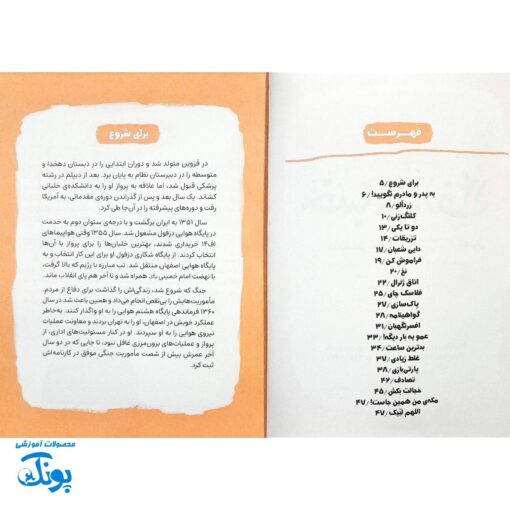 فهرست
برای شروع / ۵
به پدر و مادرم نگویید! / ۶
زردآلو / ۸
کلنگ‌زنی / ۱۰
دو تا یکی / ۱۳
تزریقات / ۱۴
دایی شعبان / ۱۷
فراموش کن / ۱۹
نخ / ۲۰
اتاق ژنرال / ۲۲
فلاسک چای / ۲۵
پاک‌سازی / ۲۷
گواهینامه / ۲۸
افسر نگهبان / ۳۱
عمو یه بار دیگه! / ۳۳
بدترین ساعت / ۳۴
غلط زیادی / ۳۷
پارتی‌بازی / ۳۸
تصادف / ۴۲
خجالت بکش / ۴۵
مکه‌ی من همین جاست! / ۴۷
اللهم لبیک / ۴۷
برای شروع
در قزوین متولد شد و دوران ابتدایی را در دبستان دهخدا و
متوسطه را در دبیرستان نظام به پایان برد. بعد از دیپلم در رشته
پزشکی قبول شد، اما علاقه به پرواز او را به دانشکده‌ی خلبانی
کشاند. یک سال بعد و پس از گذراندن دوره‌ی مقدماتی، به آمریکا
رفت و دوره‌های پیشرفته را در آن‌جا طی کرد.
سال ۱۳۵۱ به ایران برگشت و با درجه‌ی ستوان دوم به خدمت
در پایگاه هوایی دزفول مشغول شد. سال ۱۳۵۵ وقتی هواپیماهای
اف۱۴ خریداری شدند، بهترین خلبان‌ها را برای پرواز با آن‌ها
انتخاب کردند. از پایگاه شکاری دزفول او برای این کار انتخاب و به
پایگاه هوایی اصفهان منتقل شد. تب مبارزه با رژیم که بالا گرفت،
با نهضت امام خمینی همراه شد و تا آخر هم پای انقلاب ماند.
جنگ که شروع شد، زندگی‌اش را گذاشت برای دفاع از مردم.
مأموریت‌هایش را بی‌نقص انجام می‌داد و همین باعث شد در سال
۱۳۶۰ فرماندهی پایگاه هشتم هوایی را به او واگذار کنند. به‌خاطر
عملکرد خوبش در اصفهان، او را به تهران بردند و معاونت عملیات
نیروی هوایی را به او سپردند. او در کنار مسئولیت‌های اداری، از
پرواز و عملیات‌های برون‌مرزی غافل نبود، تا جایی که در دو سال
آخر عمرش بیش از شصت مأموریت جنگی موفق در کارنامه‌اش
ثبت کرد.
محصولات آموزشی
پونک